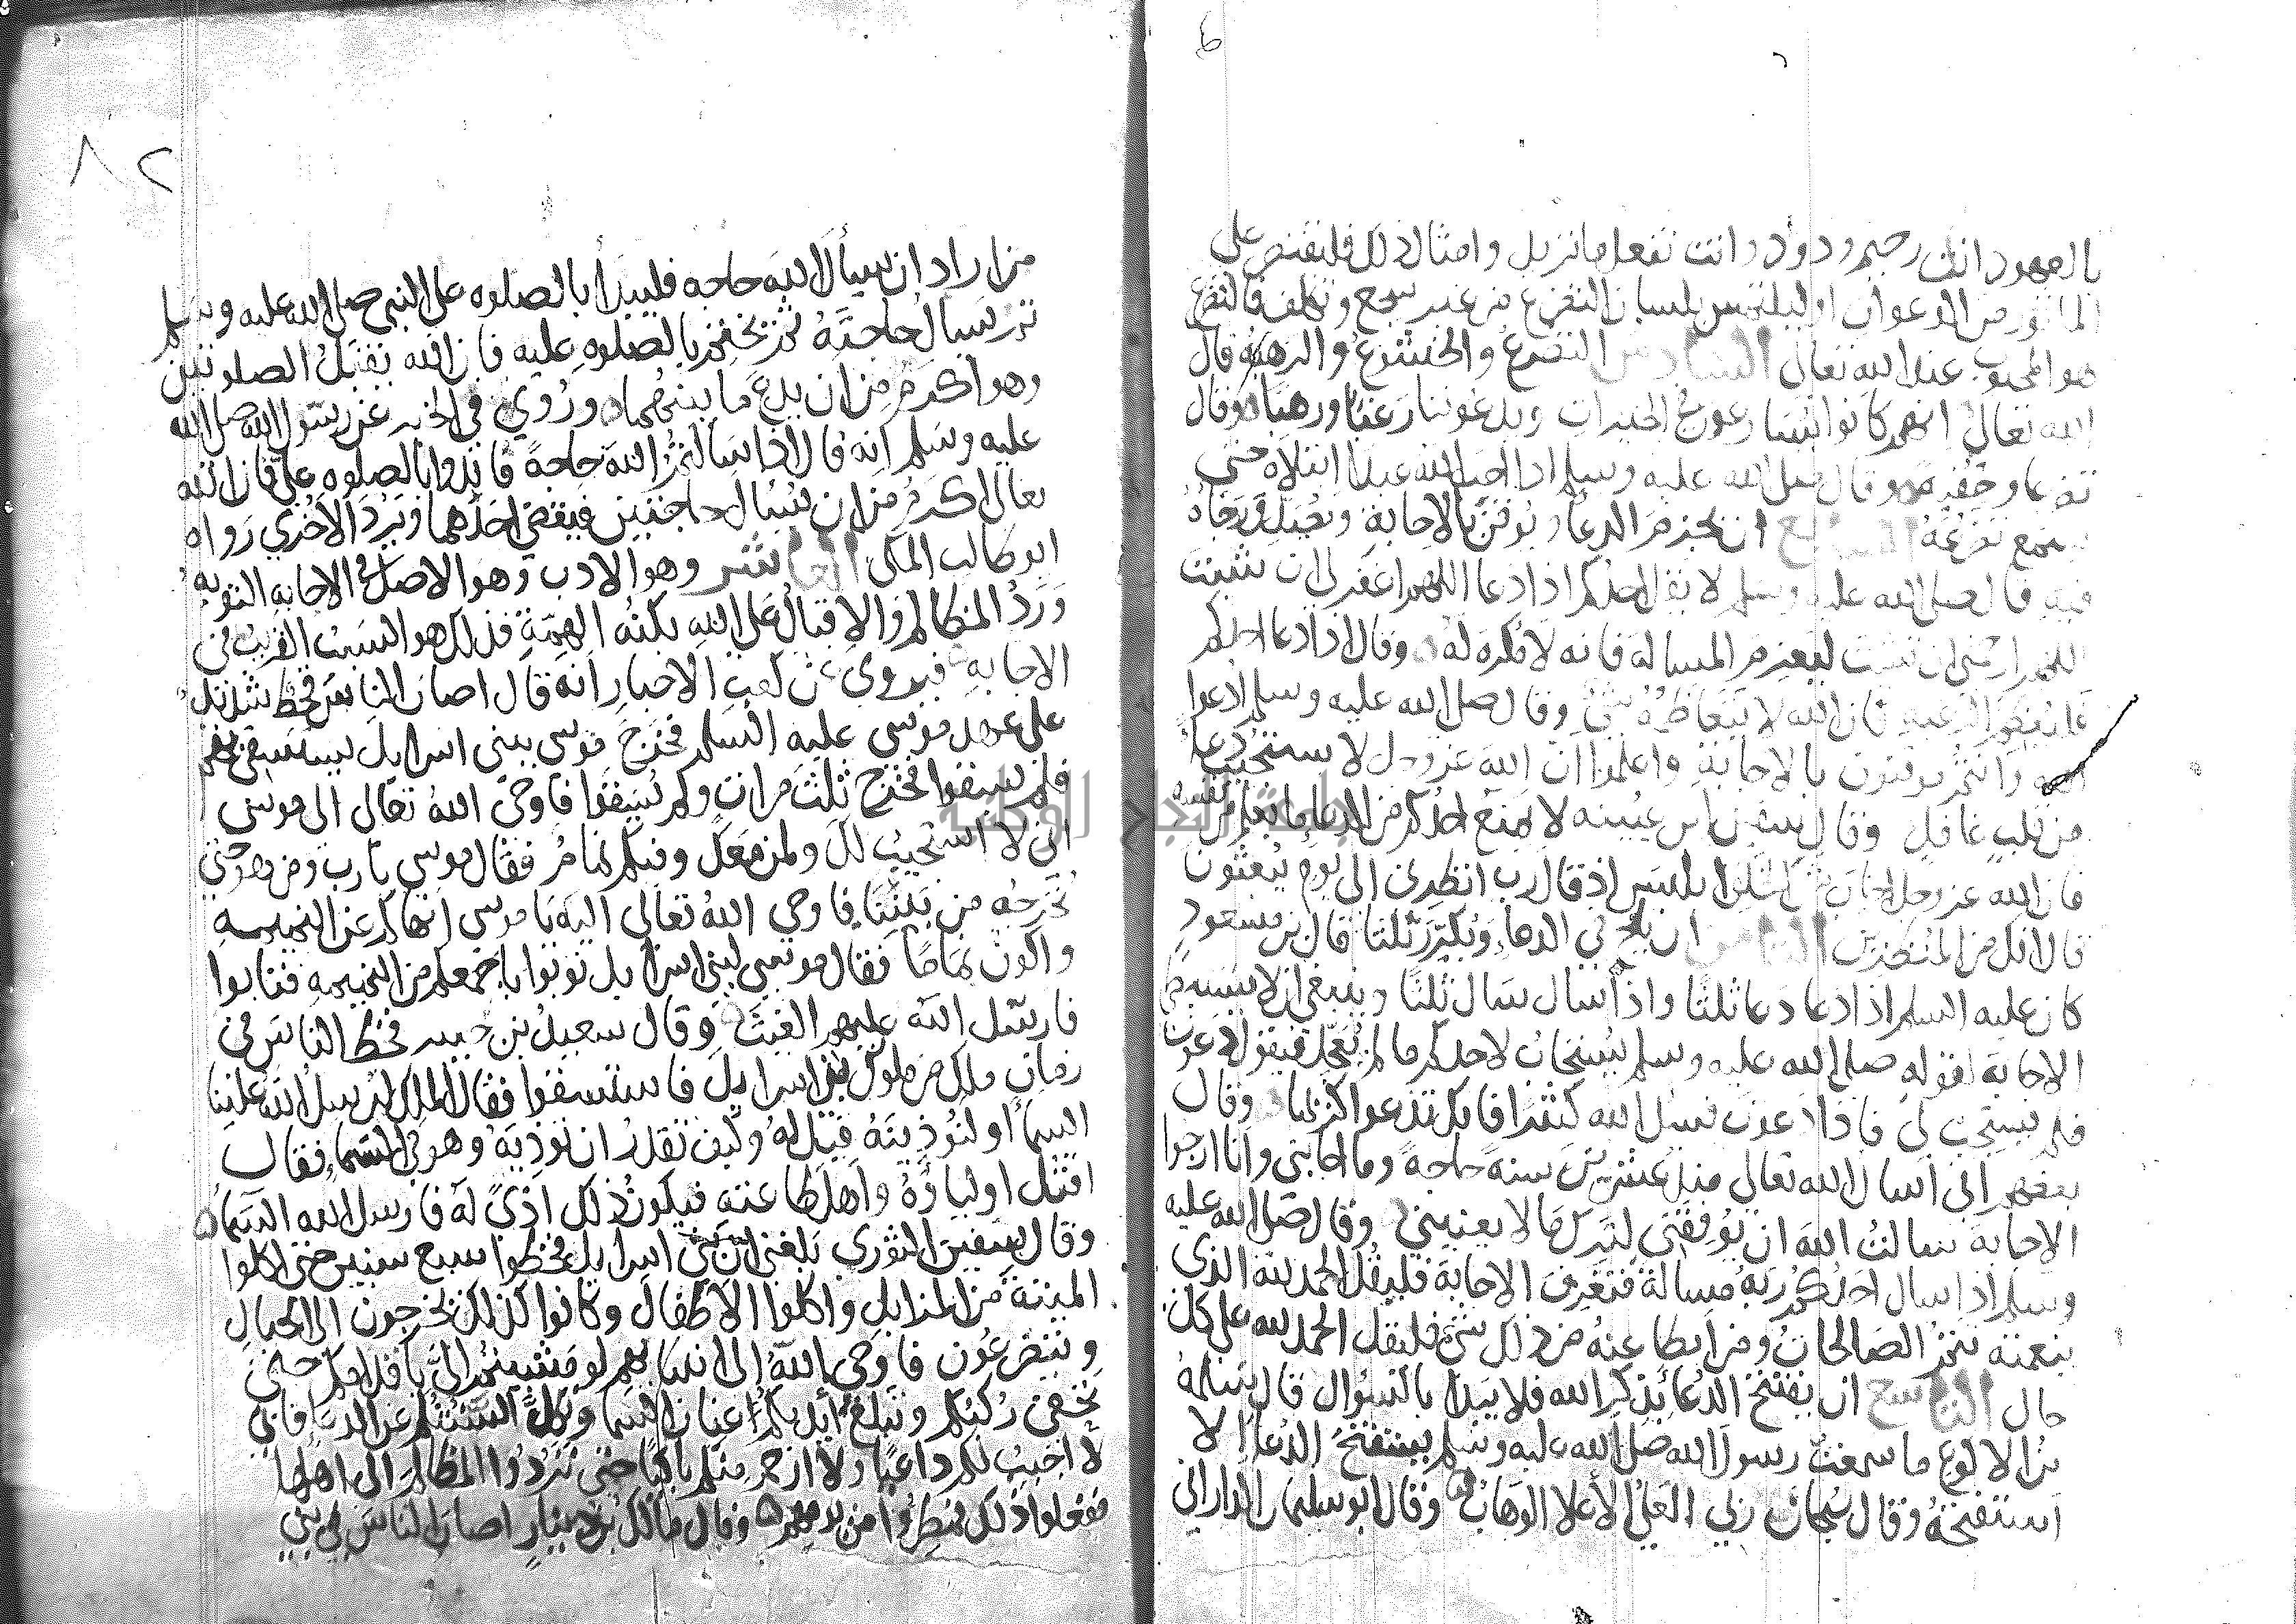 بالعهود انك رحيم ودود وانت تفعل ما تريد وامثال ذلك فليقتصر على
الماثور من الدعوات او ليلتمس بلسان التضرع من غير سجع وتكلف فالتضرع
هو المحبوب عند الله تعالى السادس التضرع والخشوع والرهبة قال
الله تعالى انهم كانوا يسارعون في الخيرات ويدعوننا رغبا ورهبا وقال
تضرعا وخفية وقال صلى الله عليه وسلم اذا احب الله عبدا ابتلاه حتى
يسمع تضرعه السابع ان يجزم الدعا ويوقن بالاجابة ويصدق رجاه
فيه قال صلى الله عليه وسلم لا يقل احدكم اذا دعا اللهم اغفر لي ان شيت
اللهم ارحمني ان شيت ليعزم المسالة فانه لا مكره له وقال اذا دعا احدكم
فليعظم الرغبة فان الله لا يتعاظمه شي وقال صلى الله عليه وسلم ادعوا
الله وانتم موقنون بالاجابة واعلموا ان الله عز وجل لا يستجيب دعا
من قلب غافل وقال سفين بن عيينه لا يمنع احدكم من الدعا ما يعلم من نفسه
فان الله عز وجل اجاب شر الخلق ابليس اذ قال رب انظرني الى يوم يبعثون
قال انك من المنظرين الثامن ان يلح في الدعا ويكرر ثلثا قال بن مسعود
كان عليه السلم اذا دعا دعا ثلثا واذا سال سال ثلثا وينبغي ان لا يستبطي
الاجابة لقوله صلى الله عليه وسلم يستجاب لاحدكم ما لم يعجل فيقول دعوت
فلم يستجب لي فاذا دعوت فسل الله كثيرا فانك تدعوا كريما وقال
بعضهم اني اسال الله تعالى منذ عشرين سنة حاجة وما اجابني وانا ارجوا
الاجابة سالت الله ان يوفقني لترك ما لا يعنيني وقال صلى الله عليه
وسلم اذا سال احدكم ربه مسالة فتعرف الاجابة فليقل الحمد لله الذي
بنعمته تتم الصالحات ومن ابطا عنه من ذلك شي فليقل الحمد لله على كل
حال التاسع ان يفتتح الدعا بذكر الله فلا يبدا بالسوال قال سلمه
بن الاكوع ما سمعت رسول الله صلى الله عليه وسلم يستفتح الدعا الا
استفتحه وقال سبحان ربي العلي الاعلا الوهاب وقال ابو سليمان الداراني
من اراد ان يسال الله حاجه فليبدا بالصلوه على النبي صلى الله عليه وسلم
ثم يسال حاجته ثم يختم بالصلوه عليه فان الله يقبل الصلوتين
وهو اكرم من ان يدع ما بينهما وروي في الخبر عن رسول الله صلى الله
عليه وسلم انه قال اذا سالتم الله حاجة فابدوا بالصلوه علي فان الله
تعالى اكرم من ان يسال حاجتين فيقضي احدهما ويرد الاخري رواه
ابو طالب المكي العاشر وهو الادب وهو الاصل في الاجابه التوبه
ورد المظالم والاقبال على الله بكنه الهمة فذلك هو السبب القريب في
الاجابه فيروي عن كعب الاحبار انه قال اصاب الناس قحط شديد
على عهد موسى عليه السلم فخرج موسى ببني اسرايل يستسقي بهم
فلم يسقوا فخرج ثلث مرات ولم يسقوا فاوحى الله تعالى الى موسى
اني لا استجيب لك ولمن معك وفيكم نمام فقال موسى يا رب ومن هو حتى
نخرجه من بيننا فاوحى الله تعالى اليه يا موسى انهاكم عن النميمه
واكون نماما فقال موسى لبني اسرايل توبوا باجمعكم من النميمه فتابوا
فارسل الله عليهم الغيث وقال سعيد بن جبير قحط الناس في
زمان ملك من ملوك بني اسرايل فاستسقوا فقال الملك ليرسلن الله علينا
السما او لنوذينه قيل له وكيف تقدر ان توذيه وهو في السما فقال
اقتل اولياه واهل طاعته فيكون ذلك اذي له فارسل الله السما
وقال سفين الثوري بلغني ان بني اسرايل قحطوا سبع سنين حتى اكلوا
الميتة من المزابل واكلوا الاطفال وكانوا كذلك يخرجون الى الجبال
ويتضرعون فاوحى الله الى انبيايهم لو مشيتم الي باقدامكم حتى
تحفى ركبكم وتبلغ ايديكم عنان السما وتكل السنتكم عن الدعا فاني
لا اجيب لكم داعيا ولا ارحم منكم باكيا حتى تردوا المظالم الى اهلها
ففعلوا ذلك فمطروا من يومهم وقال مالك بن دينار اصاب الناس في بني
جامعة النجاح الوطنية